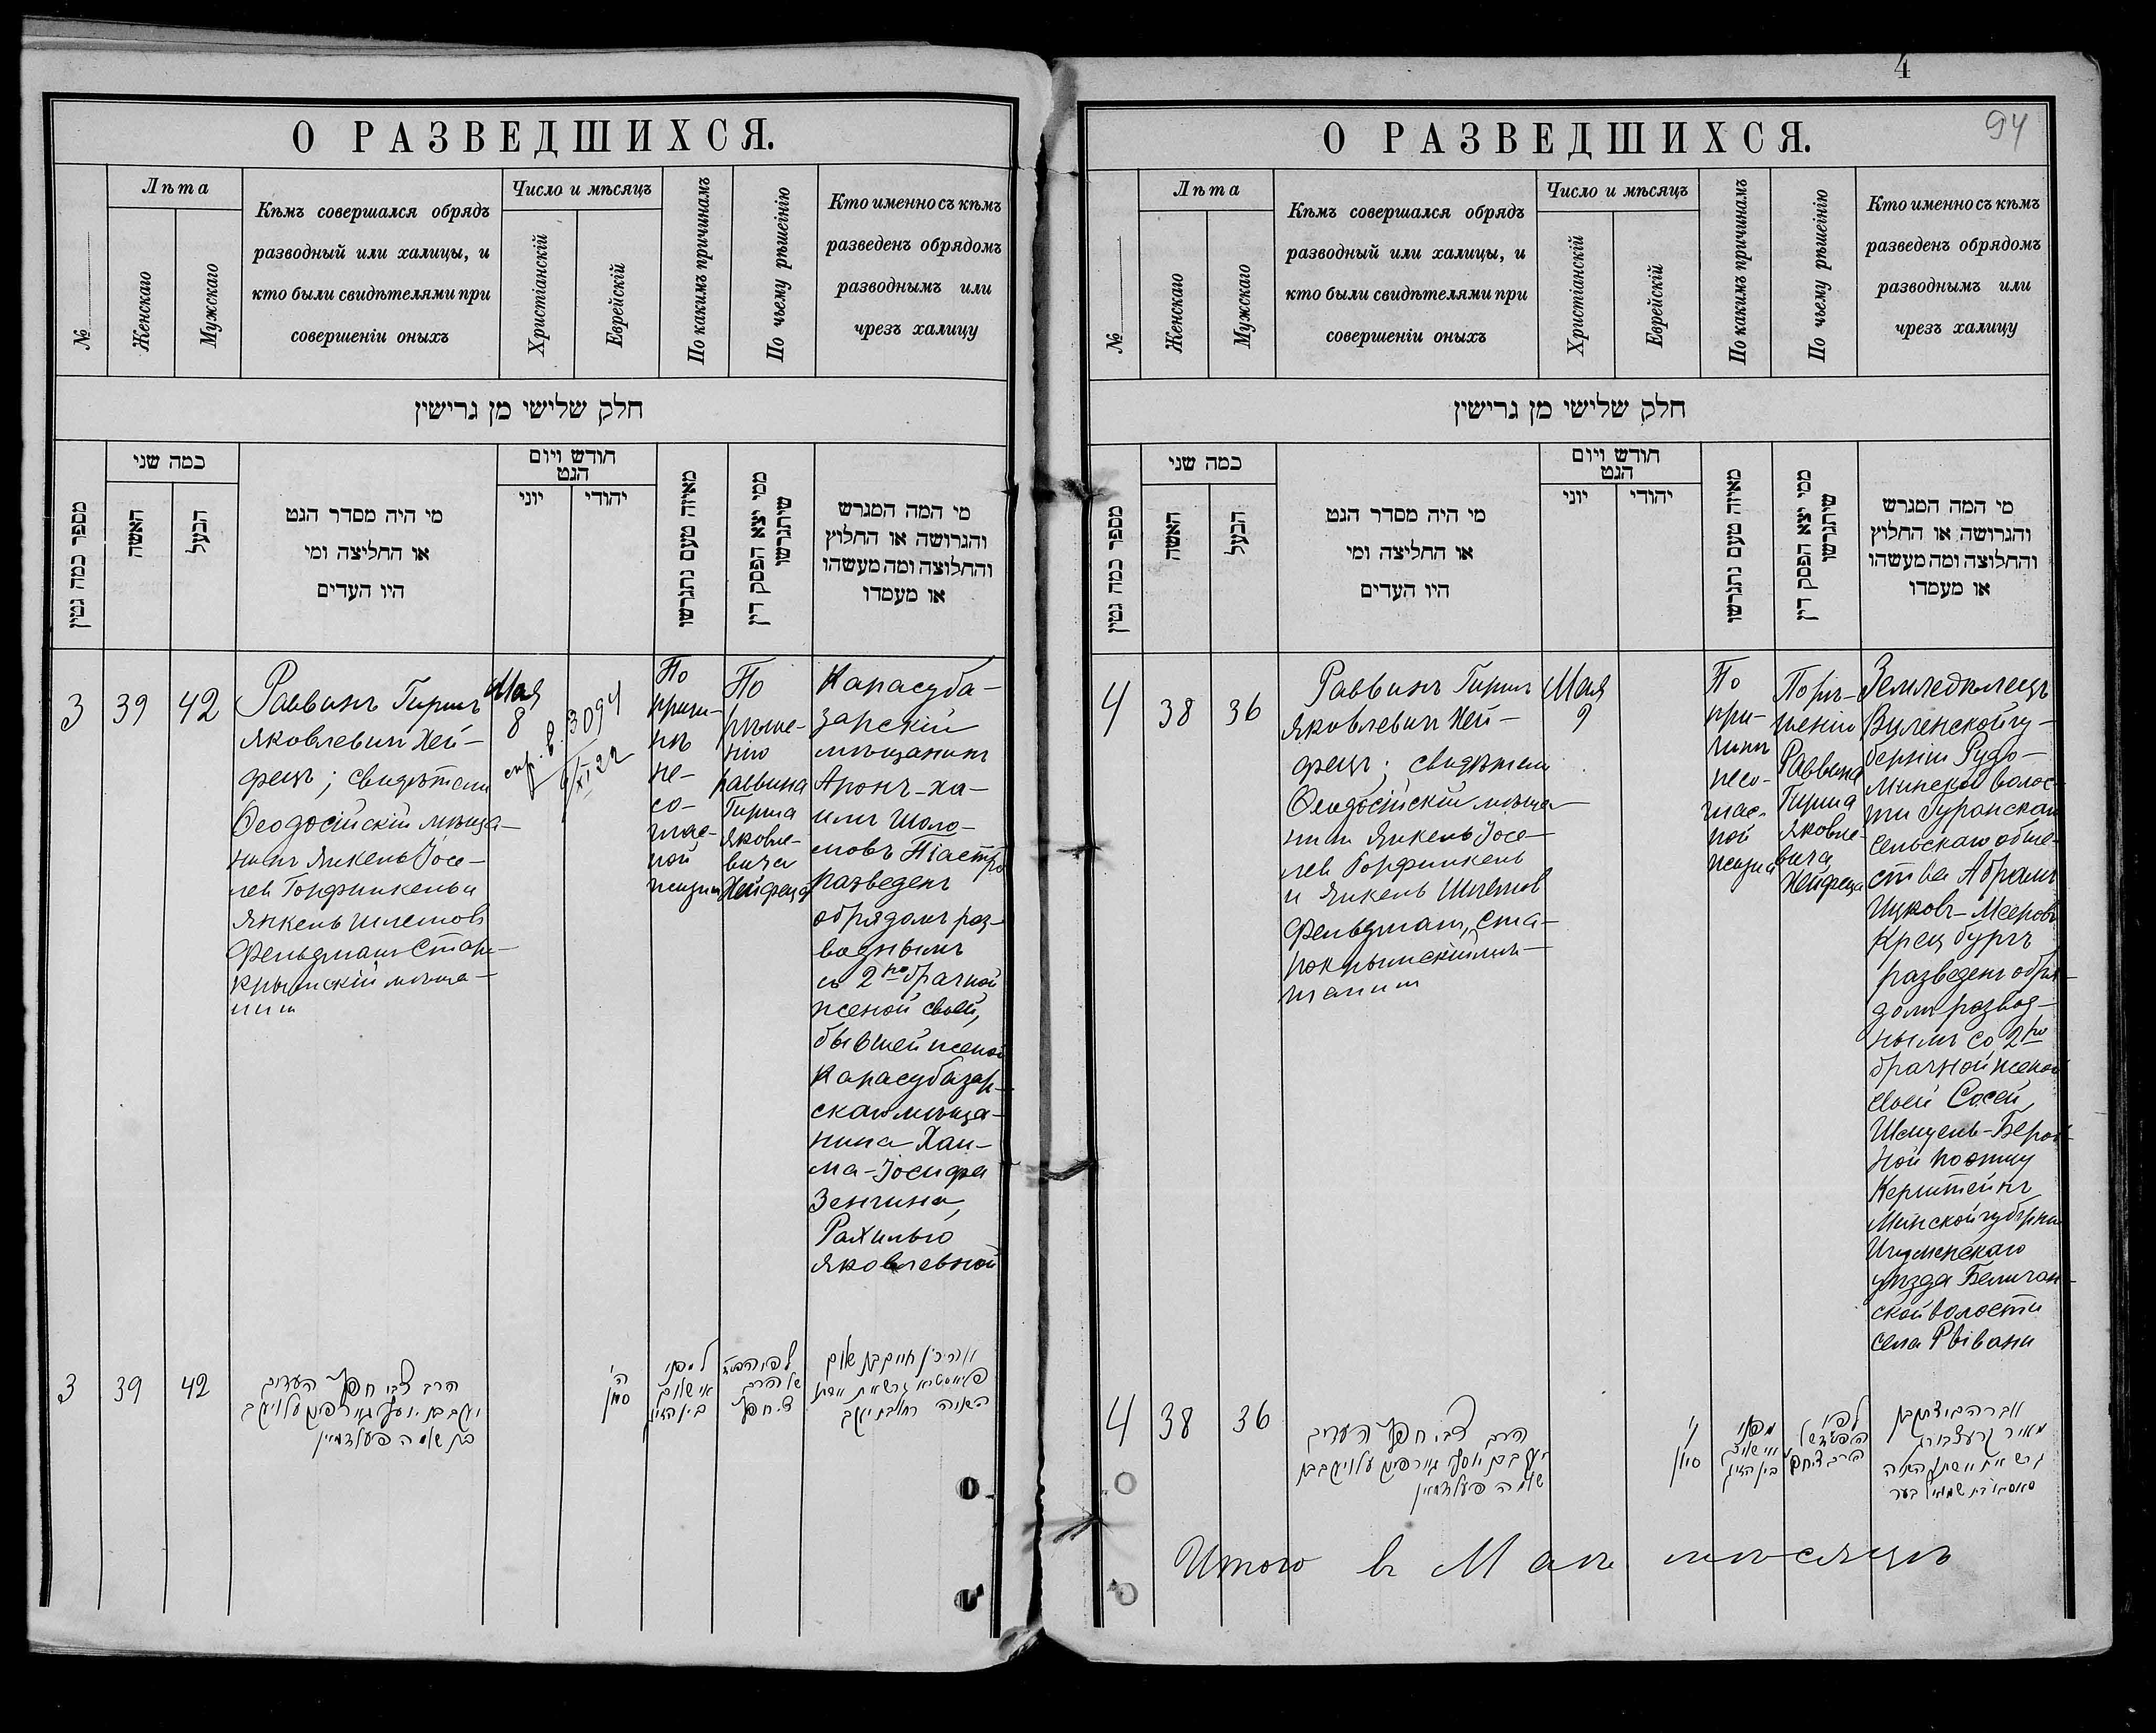 О РАЗВЕДШИХСЯ.
№
Лѣта
Женскаго
Мужскаго
Кѣмъ совершался обрядъ
разводный или халицы, и
кто были свидѣтелями при
совершеніи оныхъ
Число и мѣсяцъ
Христіанскій
Еврейскій
По какимъ причинамъ
По чьему рѣшеінію
Кто именно съ кѣмъ
разведенъ обрядомъ
разводнымъ или
чрезъ халицу
חלק שלישי מן גרישין
מספר כמה גטין
כמה שני
האשה
הבעל
מי היה מסדר הגט
או החליצה ומי
היו העדים
חודש ויום
הגט
יוני
יהודי
מאיזה טעם נתגרשו
ממי יצא הפסק דין
שיתגרשו
מי המה המגרש
והגרושה או החלוץ
והחלוצה ומה מעשהו
או מעמדו
3
39
42
Раввинъ Гиршъ
Яковлевичъ Хей-
фецъ; свидѣтели
Ѳеодосійскій мѣща-
нинъ Янкель Іосе-
лев Горфинкель и
Янкель Шлемовъ
Фельдманъ Старо-
крымскій мѣща-
нинъ
Мая
8
спр. в. 3094
6/XI 22
По
причи-
нѣ
не-
со-
глас-
ной
жизни
По
рѣше-
нію
раввина
Гирша
Яковле-
вича
Хейфеца
Карасуба-
зарскій
мѣщанинъ
Аронъ-Ха-
имъ Шоло-
мовъ Піастро
разведенъ
обрядомъ раз-
воднымъ
съ 2но брачной
женой своей,
бывшей женой
Карасубазар-
скаго мѣща-
нина Хаи-
ма-Іосифа
Зенгина,
Рахилью
Яковлевной
3
39
42
הרב צבי חפץ העדים
יעקב בן יוסף גורפינקעל ויעקב
בן שלמה פעלדמאן
ה'
סיון
4
94
О РАЗВЕДШИХСЯ.
№
Лѣта
Женскаго
Мужскаго
Кѣмъ совершался обрядъ
разводный или халицы, и
кто были свидѣтелями при
совершеніи оныхъ
Число и мѣсяцъ
Христіанскій
Еврейскій
По какимъ причинамъ
По чьему рѣшеінію
Кто именно съ кѣмъ
разведенъ обрядомъ
разводнымъ или
чрезъ халицу
חלק שלישי מן גרישין
מספר כמה גטין
כמה שני
האשה
הבעל
מי היה מסדר הגט
או החליצה ומי
היו העדים
חודש ויום
הגט
יוני
יהודי
מאיזה טעם נתגרשו
ממי יצא הפסק דין
שיתגרשו
מי המה המגרש
והגרושה או החלוץ
והחלוצה ומה מעשהו
או מעמדו
4
38
36
Раввинъ Гиршъ
Яковлевичъ Хей-
фецъ; свидѣтели
Ѳеодосійскій мѣща-
нинъ Янкель Іосе-
лев Горфинкель
и Янкель Шлемов
Фельдманъ, Ста-
рокрымскій мѣ-
щанинъ
Мая
9
По
при-
чинѣ
несо-
глас-
ной
жизни
По рѣ-
шенію
Раввина
Гирша
Яковле-
вича
Хейфеца
Земледѣлецъ
Виленской гу-
берніи Рудо-
минской волос-
ти
сельскаго обще-
ства Абрамъ
Ицковъ-Мееровъ
Крецбургъ
разведенъ обря-
домъ развод-
нымъ со 2но
брачной женой
своей Сосей
Шмуель-Беров-
ной по отцу
Керштейнъ
Минской губерніи
Игуменскаго
уѣзда
ской волости
села
4
38
36
הרב צבי חפץ העדים
יעקב בן יוסף גורפינקעל ויעקב בן
שלמה פעלדמאן
ו'
סיון
Итого в Маѣ мѣсяцѣ